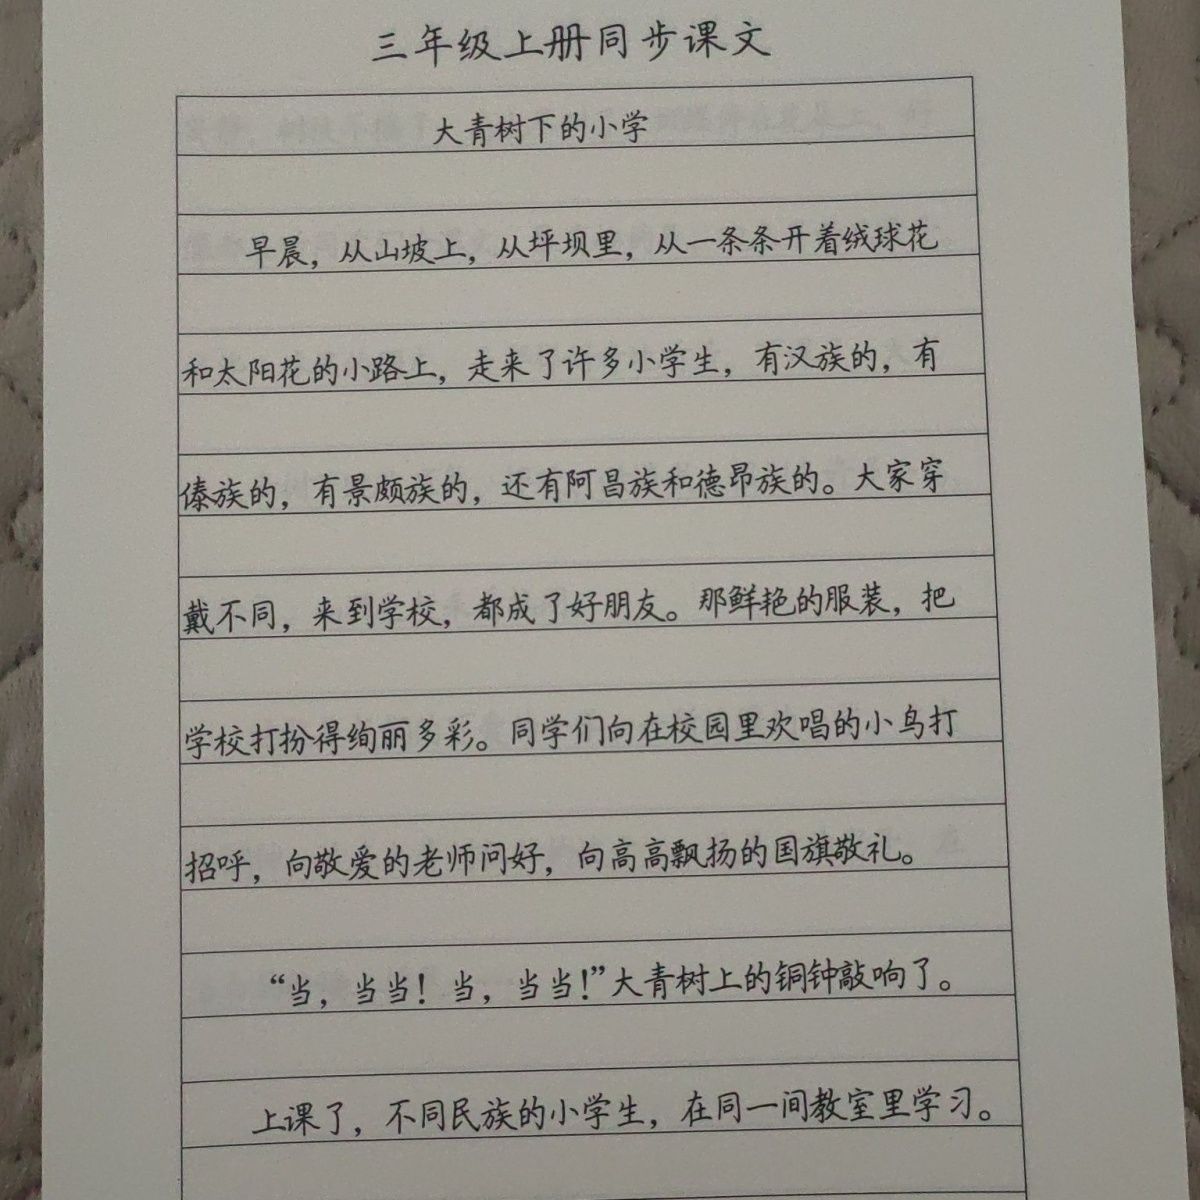 三年级上册同步课文
大青树下的小学
早晨，从山坡上，从坪坝里，从一条条开着绒球花
和太阳花的小路上，走来了许多小学生，有汉族的，有
傣族的，有景颇族的，还有阿昌族和德昂族的。大家穿
戴不同，来到学校，都成了好朋友。那鲜艳的服装，把
学校打扮得绚丽多彩。同学们向在校园里欢唱的小鸟打
招呼，向敬爱的老师问好，向高高飘扬的国旗敬礼。
“当，当当！当，当当！”大青树上的铜钟敲响了。
上课了，不同民族的小学生，在同一间教室里学习。